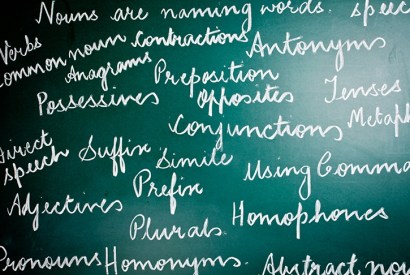 Nouns are naming words. speec
Verbs
common noun contractions Antonyms
Anagrams Preposition
Possessives Opposites Tenses
Conjunctions Metaph
Direct
speech Suffix Simile Using Comma
Prefix
Adjectives Plurals Homophones
Pronouns Homonyms. Abstract nou